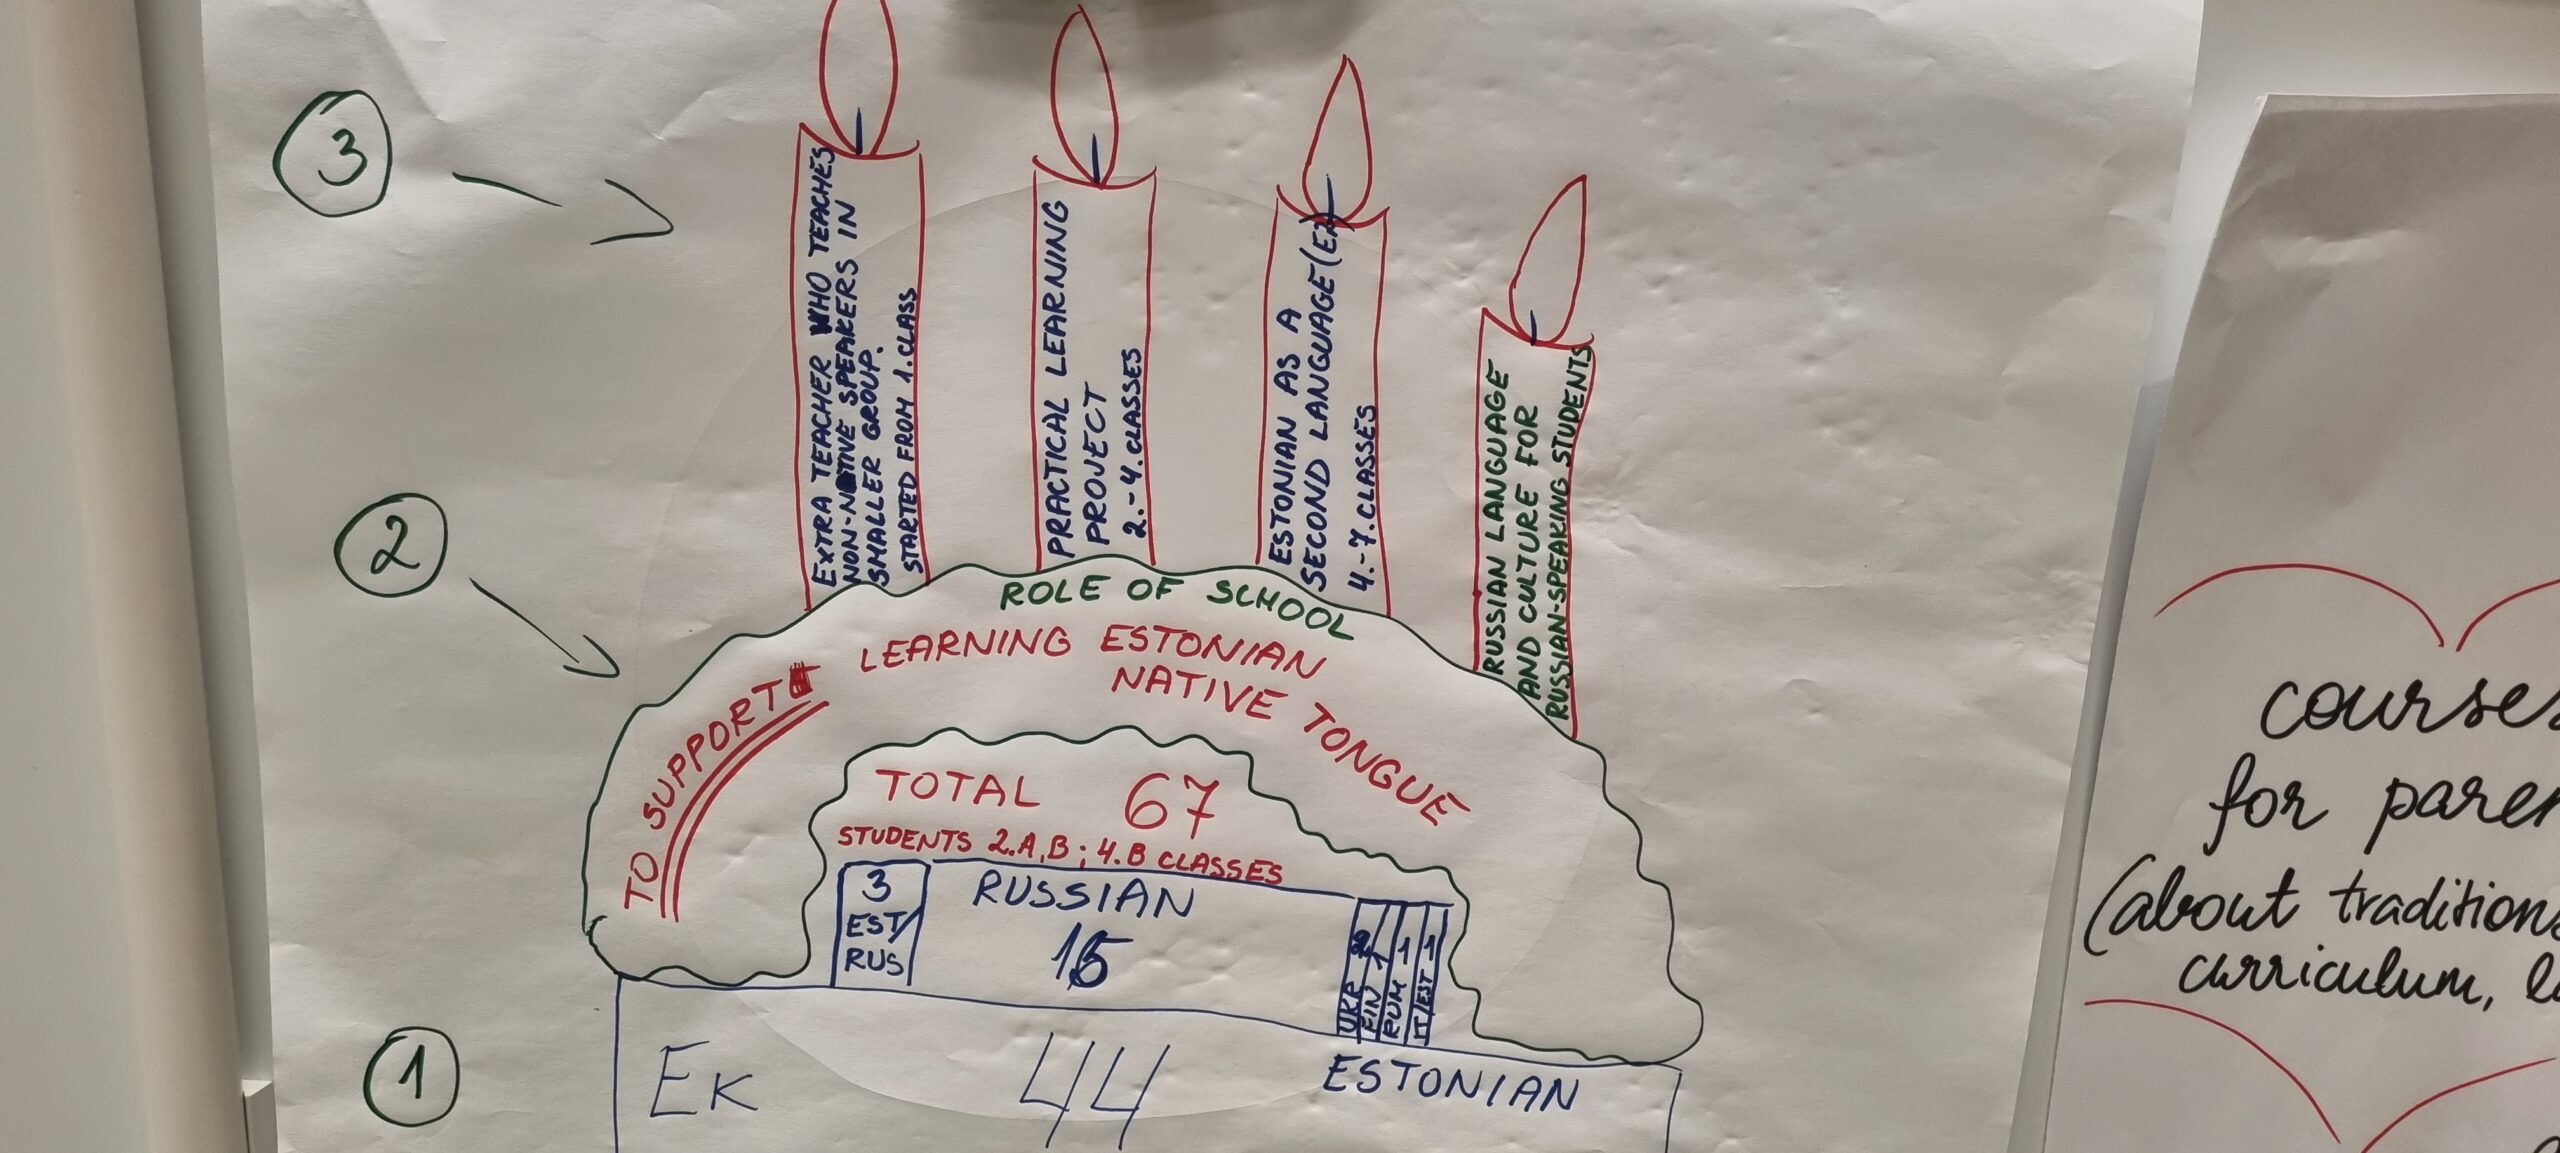 3
EXTRA TEACHER WHO TEACHES
NON-NATIVE SPEAKERS IN
SMALLER GROUP.
STARTED FROM 1.CLASS
PRACTICAL LEARNING
PROJECT
2.-4.CLASSES
ESTONIAN AS A
SECOND LANGUAGE (E2)
4.-7.CLASSES
RUSSIAN LANGUAGE
AND CULTURE FOR
RUSSIAN-SPEAKING STUDENTS
2
ROLE OF SCHOOL
TO SUPPORT LEARNING ESTONIAN
NATIVE TONGUE
TOTAL 67
STUDENTS 2.A,B; 4.B CLASSES
3
EST/
RUS
RUSSIAN
UKR 2
FIN 1
RUM 1
IT/EST 1
1
EK 44 ESTONIAN
courses
for
(about
curriculum,